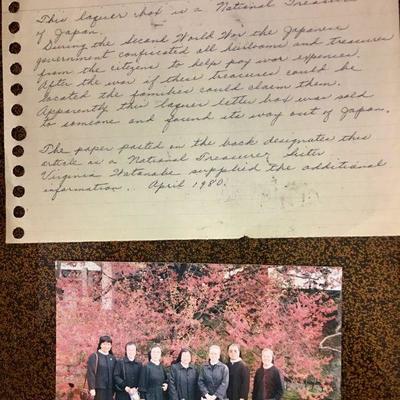 This laquer box is a National Treasure
of Japan.
During the Second World War the Japanese
government confiscated all heirlooms and treasures
from the citizens to help pay war expenses.
After the war if these treasures could be
located the families could claim them.
Apparently this laquer letter box was sold
to someone and found its way out of Japan.
The paper pasted on the back designates this
article as a National Treasure. Sister
Virginia Watanabe supplied the additional
information. April 1980.